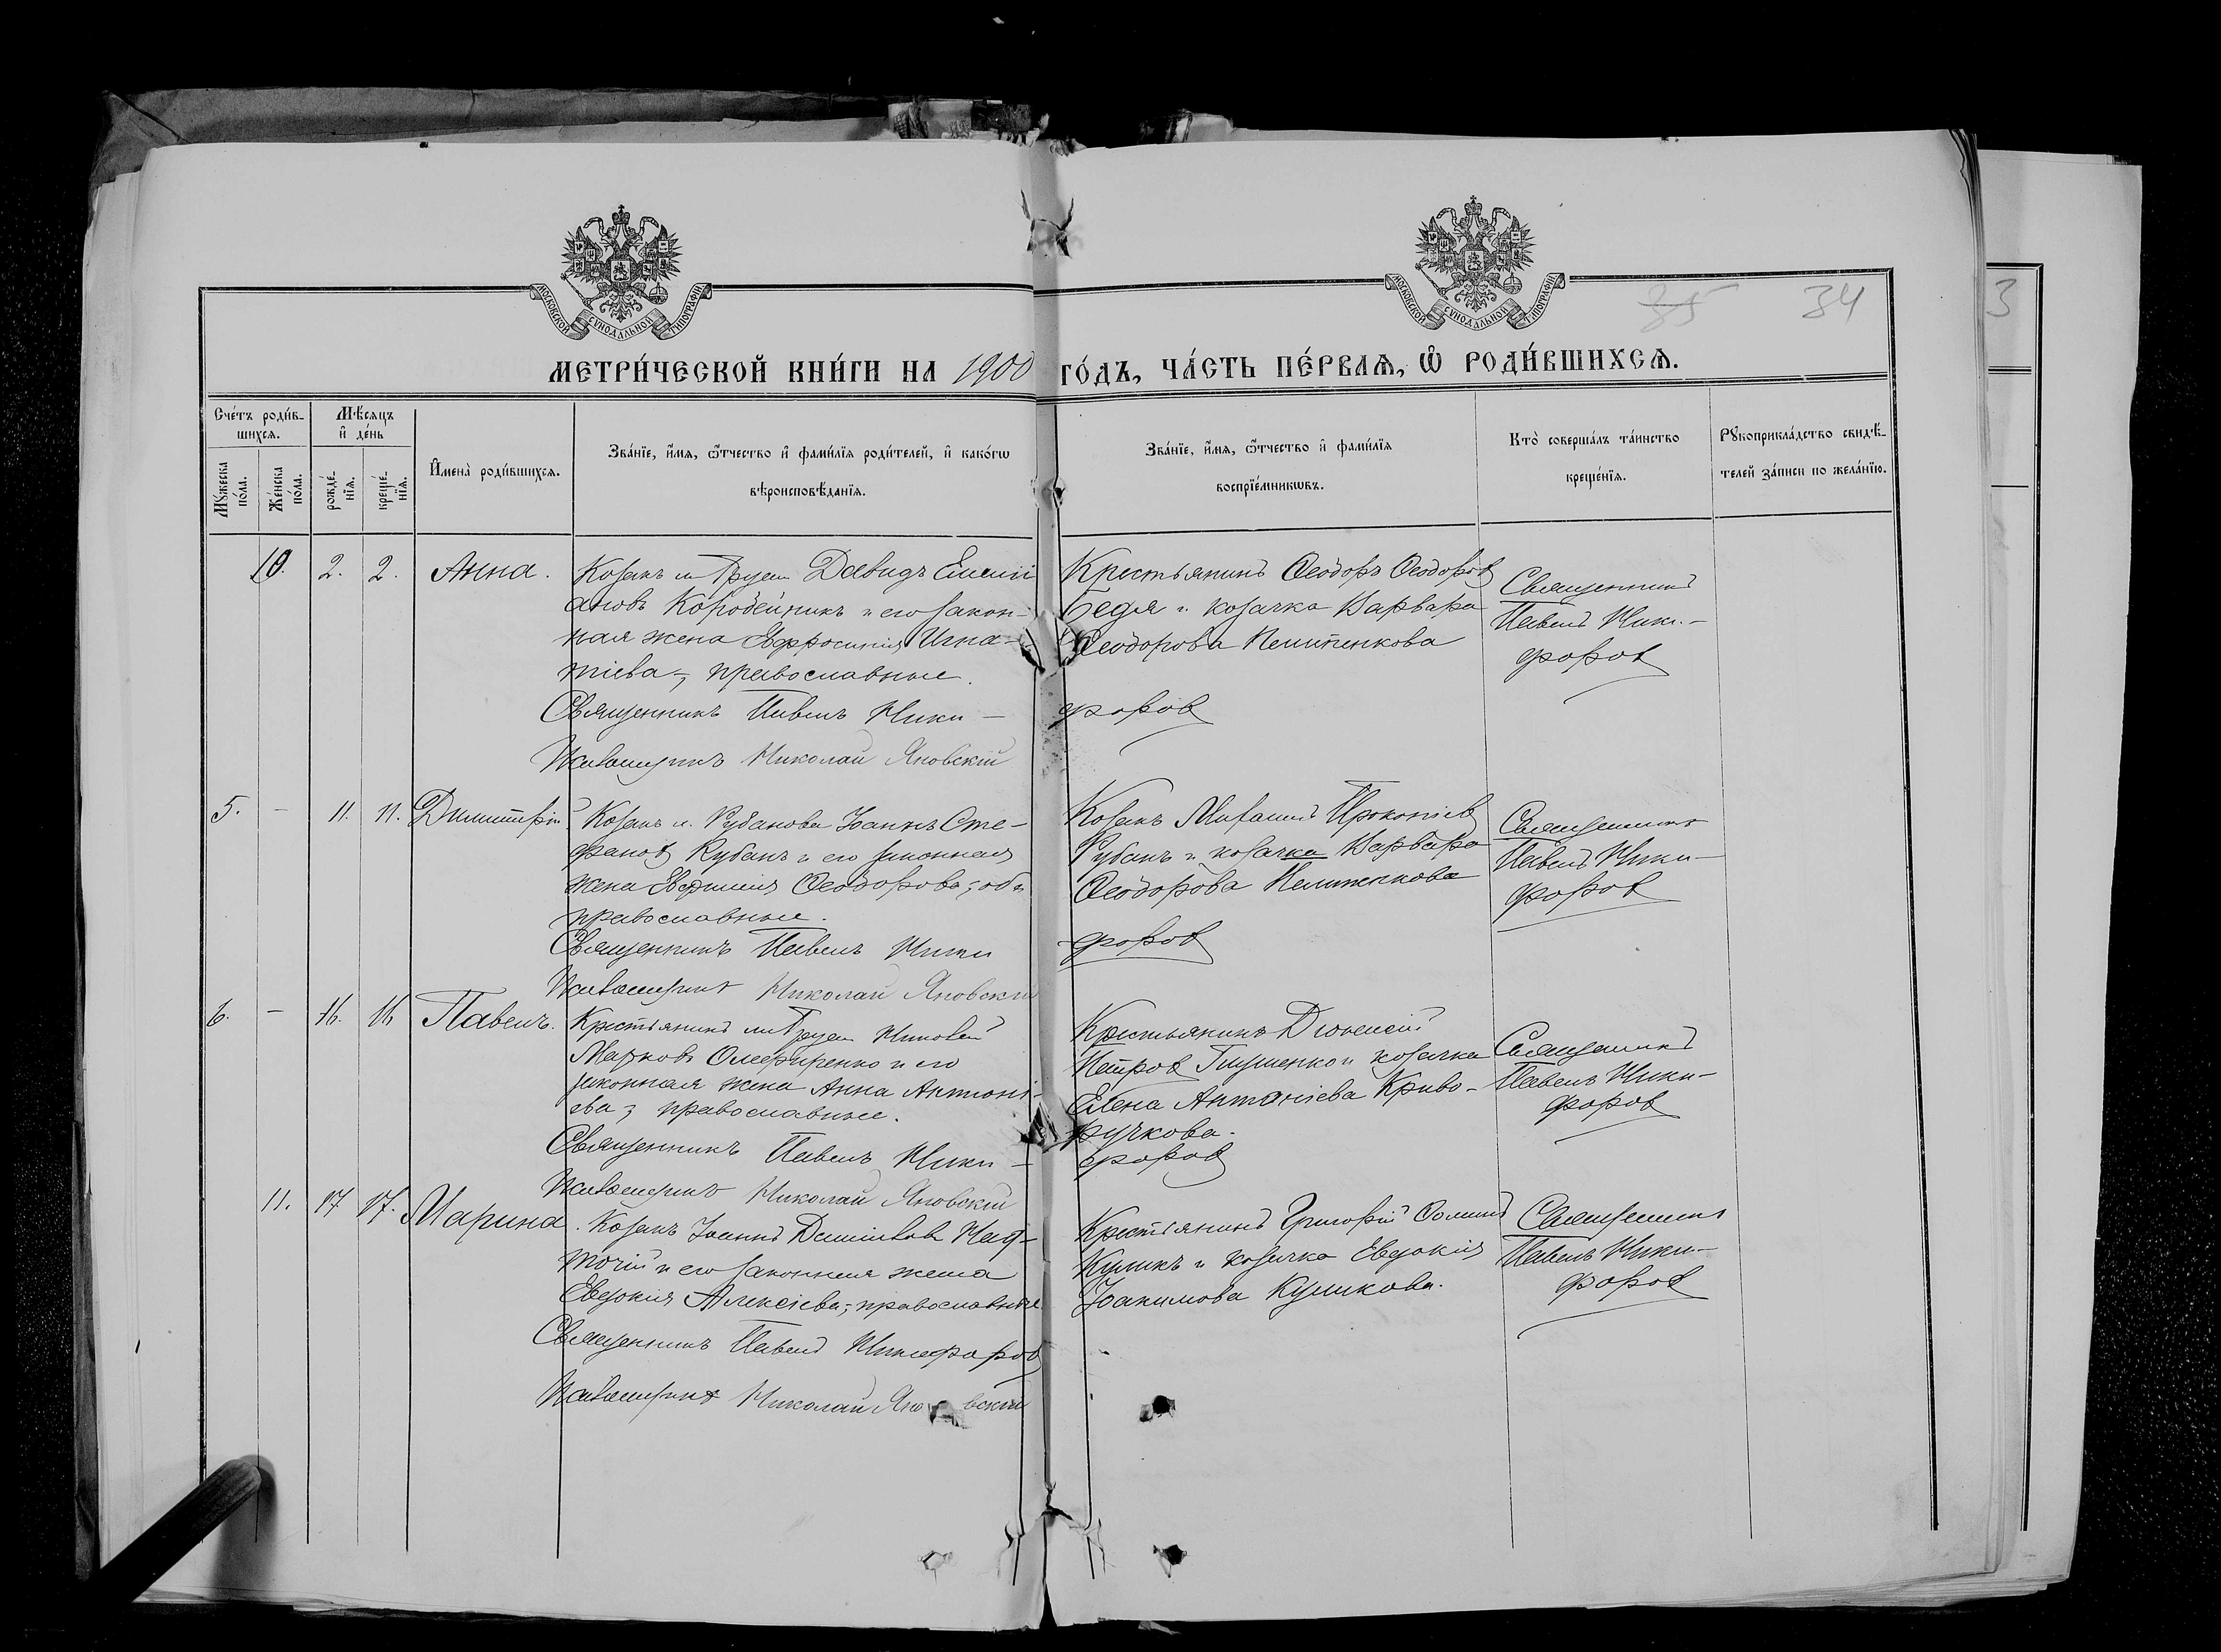 МОСКОВСКОЙ СУНОДАЛЬНОЙ ТИПОГРАФІИ
МОСКОВСКОЙ СУНОДАЛЬНОЙ ТИПОГРАФІИ
35 34
3
МЕТРИ́ЧЕСКОЙ КНИ́ГИ НА 1900 ГО́ДЪ, ЧА́СТЬ ПЕ́РВАѦ, Ѿ РОДИ́ВШИХСѦ.
Сче́тъ роди́в-
шихсѧ.
Мꙋ́жеска по́ла.
Же́нска по́ла.
Мѣ́сѧцъ и҆ де́нь
рожде́-нїѧ.
креще́-нїѧ.
И҆мена̀ роди́вшихсѧ.
Зва́нїе, и҆́мѧ, ѻ҆́тчество и҆ фами́лїѧ роди́телей, и҆ како́гѡ
вѣроисповѣ́данїѧ.
Зва́нїе, и҆́мѧ, ѻ҆́тчество и҆ фами́лїѧ
воспрїе́мникѡвъ.
Кто̀ соверша́лъ та́инство
креще́нїѧ.
Рꙋкоприкла́дство свидѣ́-
телей за́писи по жела́нїю.
10. 2. 2. Анна.
Козакъ Давидъ
ановъ Коробейникъ и его закон-
ная жена Ефросинія Игна-
тіева, православные.
Священникъ Павелъ Ники-
форов
Псаломщикъ Николай Яновскій
Крестьянинъ Ѳеодоръ Ѳеодоров
и козачка Варвара
Ѳеодорова
Священникъ
Павелъ Ники-
форов
5. - 11. 11. Димитрій
Козакъ х. Рубанова Іоаннъ Сте-
фанов Рубанъ и его законная
жена Ѳеодорова; оба
православные.
Священникъ Павелъ Ники
форов
Псаломщикъ Николай Яновскій
Козакъ Михаилъ Прокопіев
Рубанъ и козачка Варвара
Ѳеодорова
Священникъ
Павелъ Ники-
форов
6. - 16. 16 Павелъ.
Крестьянинъ
Марковъ Олефиренко и его
законная жена Анна Антоні-
ева; православные.
Священникъ Павелъ Ники-
форов
Псаломщикъ Николай Яновскій
Крестьянинъ Діонисій
Петров и козачка
Елена Антоніева Криво-
ручкова.
Священникъ
Павелъ Ники-
форов
11. 17 17. Марина.
Козакъ Іоаннъ Над-
точій и его законная жена
Евдокія Алексіева; православные
Священникъ Павелъ Никифоров
Псаломщикъ Николай Яновскій
Крестьянинъ Григорій
Куликъ и козачка Евдокія
Іоакимова Куликова.
Священникъ
Павелъ Ники-
форов